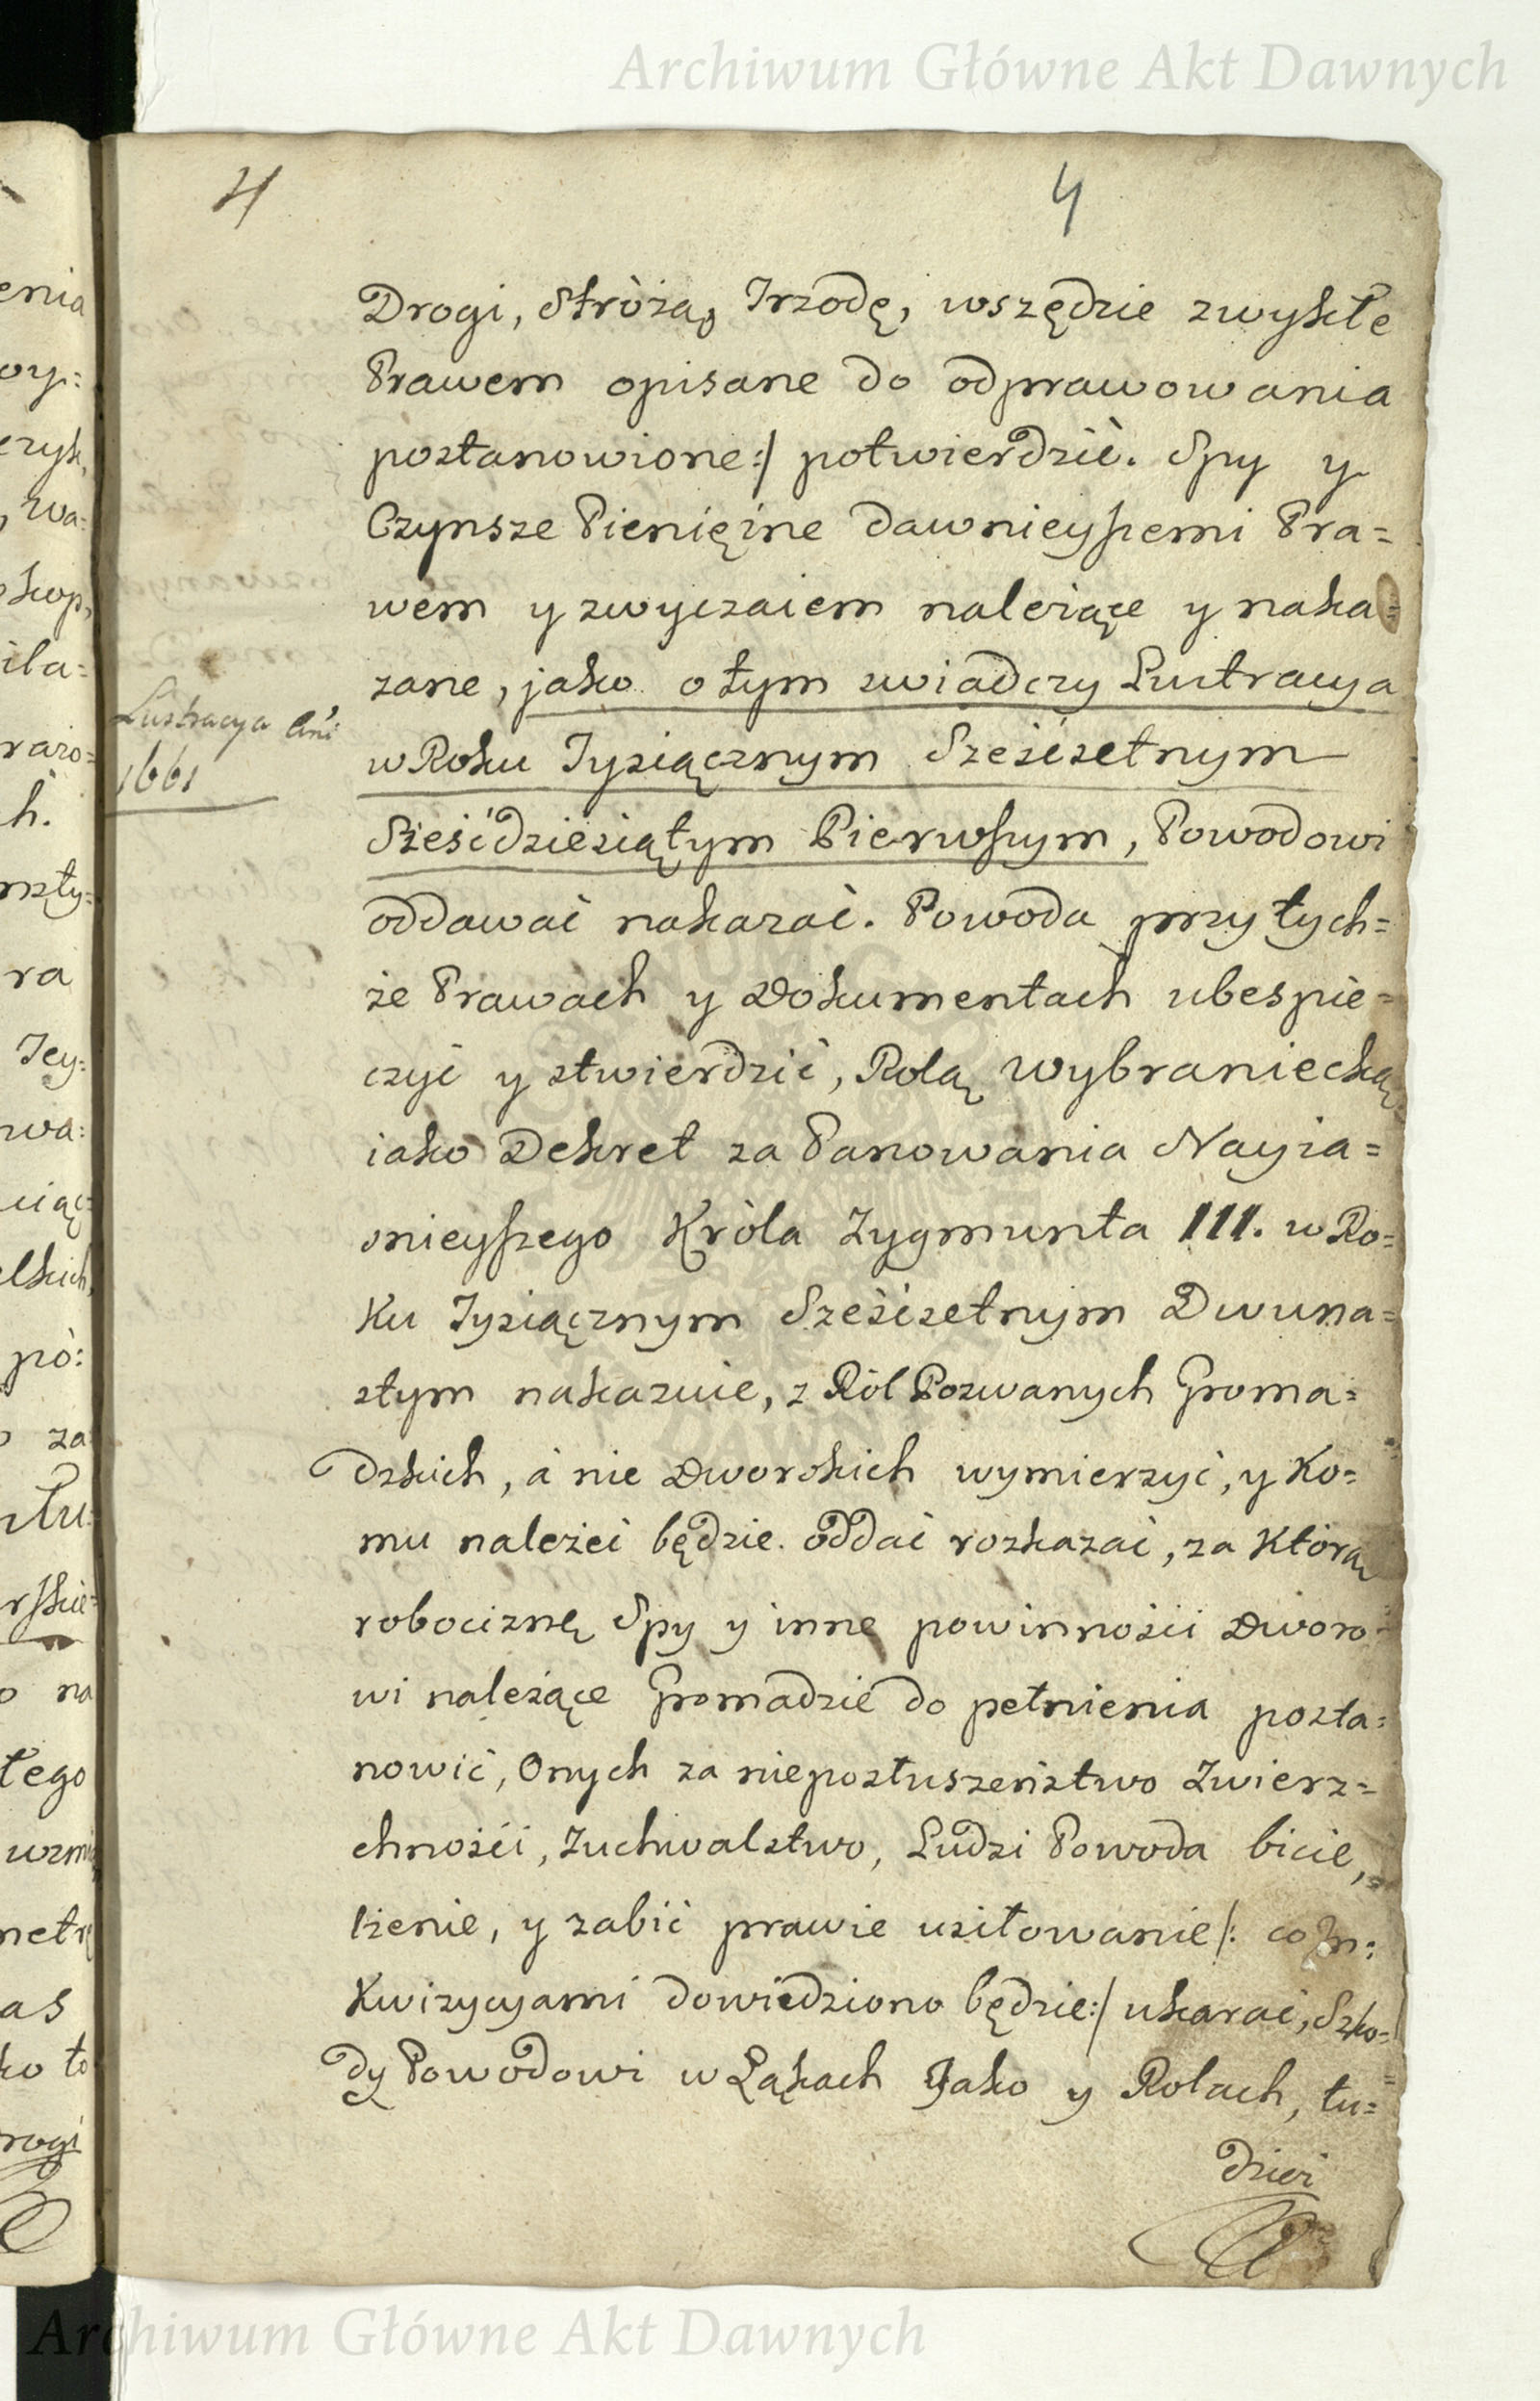 Archiwum Główne Akt Dawnych
4 4
Drogi, Stróżą, Trzodę, wszędzie zwykłe
Prawem opisane do odprawowania
postanowione:/ potwierdzić. Spy y
Czynsze Pieniężne dawnieyszemi Pra=
wem y zwyczaiem należiące y naka=
zane, jako o tym swiadczy Lustracya
w Roku Tysiącznym Sześćsetnym
Sześćdziesiątym Pierwszym, Powodowi
Lustracya Ani
1661
oddawać nakazać. Powoda przy tych=
że Prawach y Dokumentach ubespie=
czyć y stwierdzić, Rolą wybraniecką
iako Dekret za Panowania Nayia=
snieyszego Króla Zygmunta III. w Ro=
ku Tysiącznym Sześćsetnym Dwuna=
stym nakazuie, z Ról Pozwanych Groma=
dzkich, á nie Dworskich wymierzyć, y Ko=
mu należeć będzie. oddać rozkazać, za Którą
robociznę Spy y inne powinności Dworo=
wi należące Gromadzie do pełnienia posta=
nowić, Onych za nieposłuszeństwo Zwierz=
chności, Zuchwalstwo, Ludzi Powoda bicie,
lżenie, y zabić prawie usiłowanie /: co In:
kwizycyami dowiedziono będzie:/ ukarać, Szko=
dy Powodowi w Łąkach Jako y Rolach, tu=
dzież
Archiwum Główne Akt Dawnych